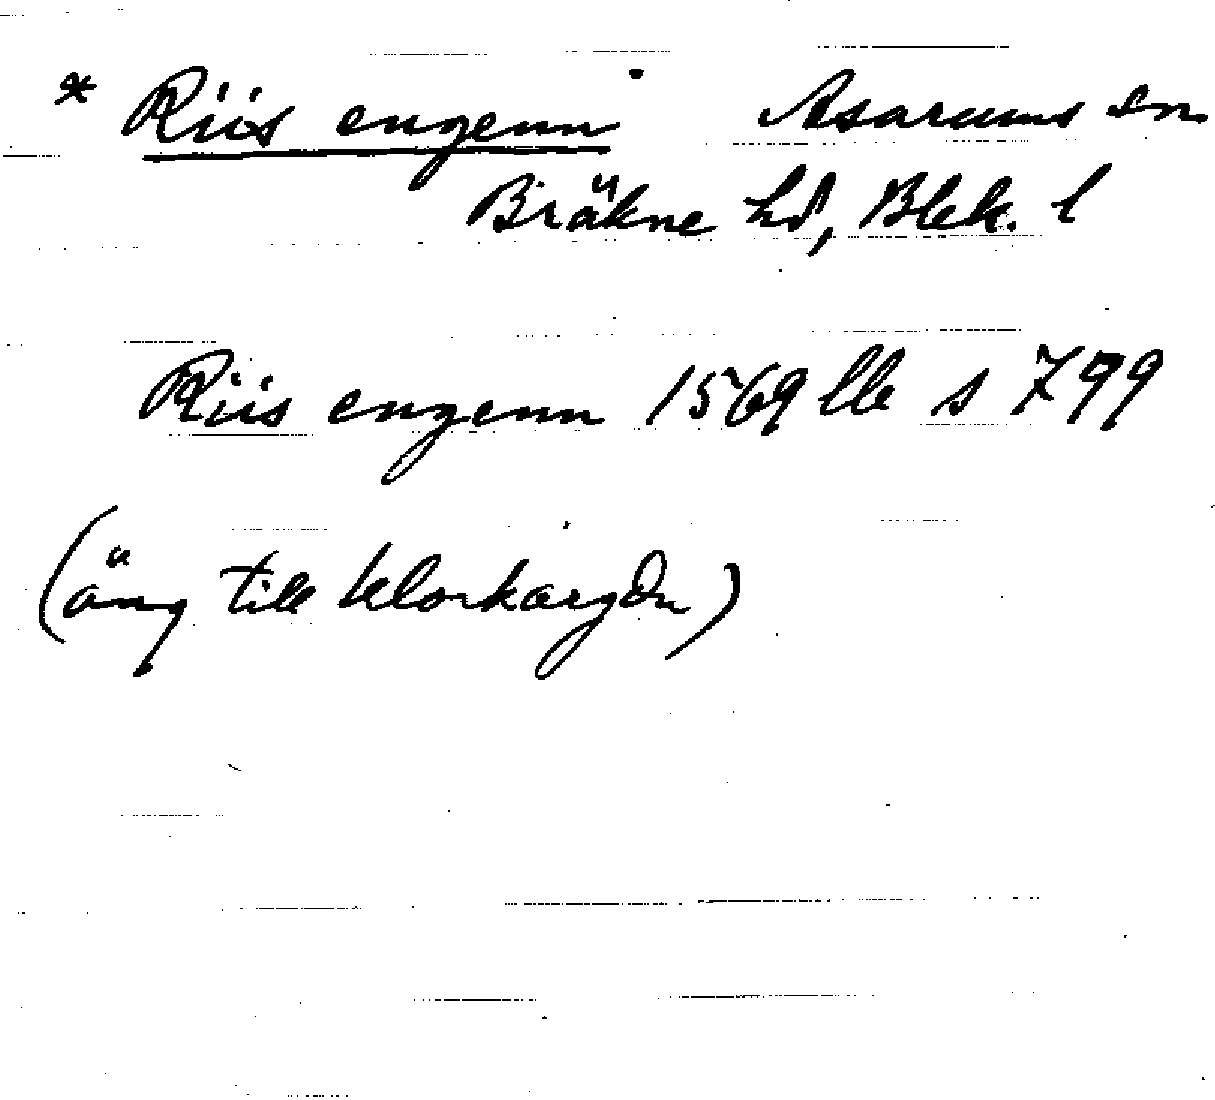 * Riis engenn Asarums sn
Bräkne hd, Blek. l
Riis engenn 1569 llb s 799
(äng till klockargdn)